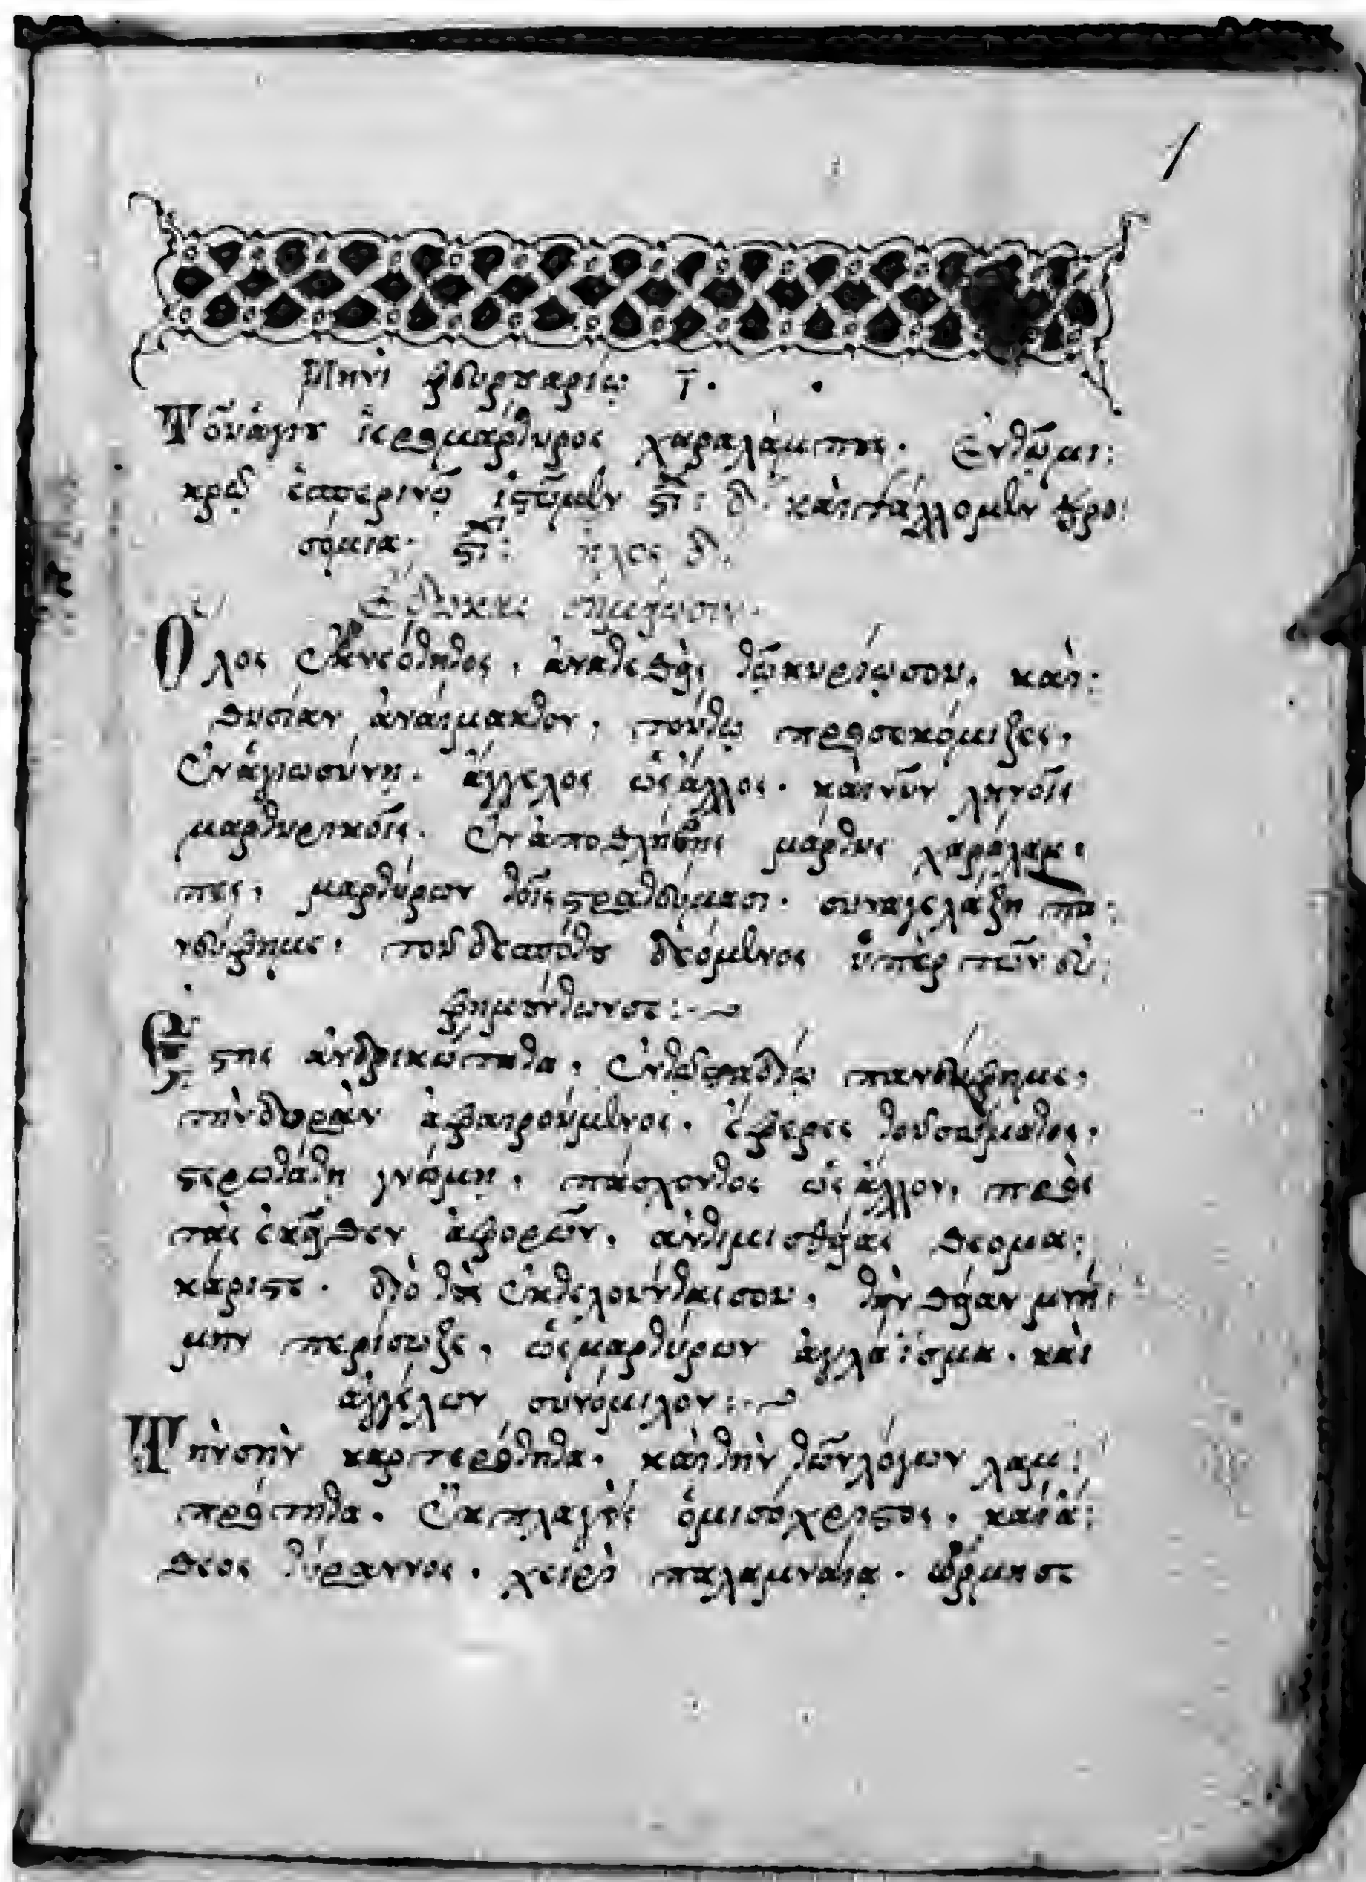 Μηνὶ φευρουαρίω ι.
Τοῦ ἁγίου ἱερομάρτυρος χαραλάμπους. Ἐν τῶ μι:
κρῶ ἑσπερινῶ ἱστῶμεν στί: δ. καὶ ψάλλομεν προ:
σόμια στί: ἦχος δ.
Ἔδωκας σημείωσιν.
Ὅλος ἐκ νεότητος, ἀνετέθης τῶ κυρίω σου, καὶ:
θυσίαν ἀναίμακτον, τούτω προσεκόμιζες,
ἐν ἁγιωσύνη. ἄγγελος ὡς ἄλλος. καὶ νῦν ληνοῖς
μαρτυρικοῖς. ἐναποθλήβης μάρτυς χαράλαμ:
πες, μαρτύρων τοῖς στρατεύμασι. συναγελάζη πα:
νεύφημε, τοῦ δεσπότου δεόμενος ὑπὲρ τῶν εὐ:
φημούντων σε:
Ἔστης ἀνδρικώτατα, ἐν τῶ σταδίω πανεύφημε,
τὴν δορὰν ἀφαιρούμενος, ἔφερες τοῦ σώματος,
στερωτάτη γνώμη, πάσχοντος ὡς ἄλλου, πρὸς
τὰς ἐκεῖθεν ἀφορῶν, ἀντιμισθείας θεομα:
κάριστε. διὸ τὰ ἐκτελούντας σου, τὴν θείαν μνή:
μην περίσωζε, ὡς μαρτύρων ἀγλάϊσμα. καὶ
ἀγγέλων συνόμιλον:
Τὴν σὴν καρτερότητα. καὶ τὴν τῶν λόγων λαμ:
πρότητα. ἐκπλαγεὶς ὁ μισόχριστος, καὶ ἄ:
θεος τύραννος, χειρὶ παλαμναία. ὥρμησε